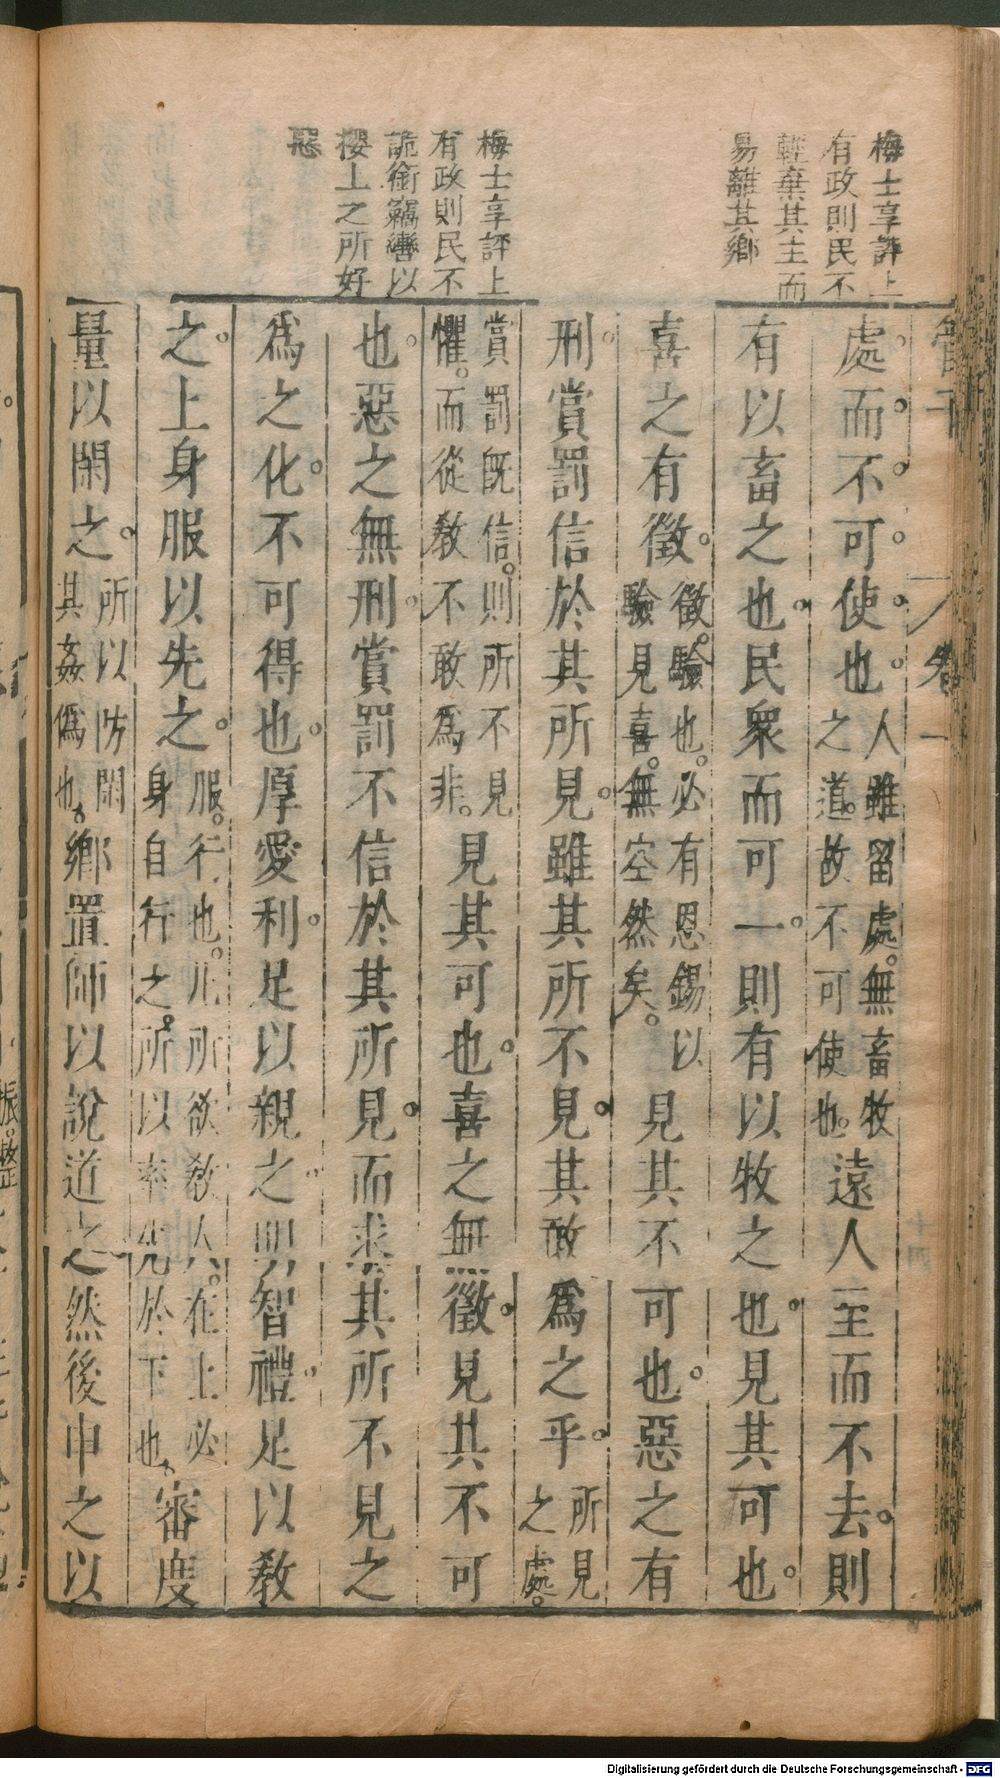 梅士享評上
有政則民不
輕棄其主而
易離其鄉
梅士享評上
有政則民不
詭銜竊轡以
攖上之所好
惡
管子
卷一
處而不可使也人雖留處。無畜牧之道。故不可使也。遠人至而不去。則
有以畜之也。民眾而可一。則有以牧之也。見其可也。
喜之有徵。徵。驗也。必有恩錫以驗見喜。無空然矣。見其不可也。惡之有
刑。賞罰信於其所見。雖其所不見。其敢爲之乎。所見之處。
賞罰旣信。則所不見懼。而從敎不敢爲非。見其可也。喜之無徵。見其不可
也。惡之無刑。賞罰不信於其所見。而求其所不見之
爲之化。不可得也。厚愛利。足以親之。明智禮。足以敎
之。上身服以先之。服。行也。凡所欲敎人。在上必身自行之。所以率先於下也。審度
量以閑之。所以防閑其姦僞也。鄉置師以說道之然後申之以
振。整
Digitalisierung gefördert durch die Deutsche Forschungsgemeinschaft - DFG